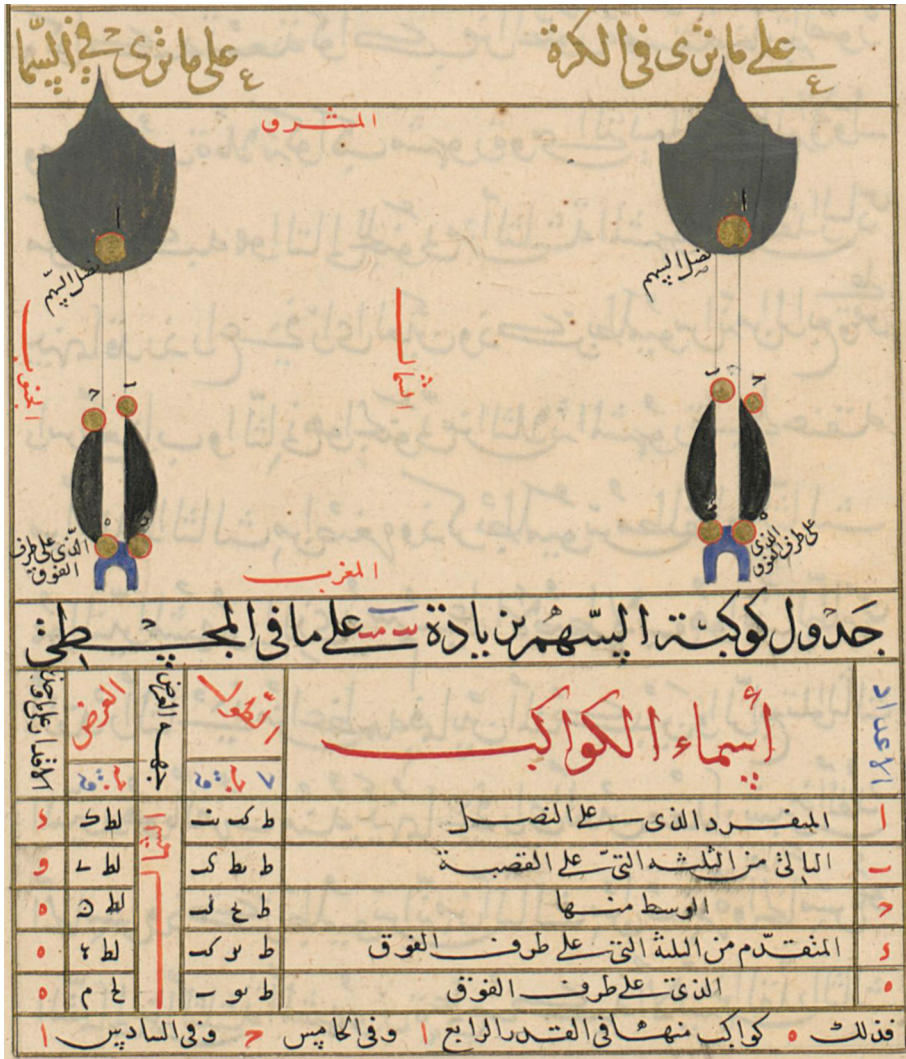 على ما ترى في الكرة
على ما ترى في السما
المشرق
ا
ا
نصل السهم
نصل السهم
الشمال
الجنوب
الذى على طرف الفوق
الذى على طرف الفوق
المغرب
جدول كوكبة السهم بزيادة على ما فى المجسطى
الاعداد أسماء الكواكب الطول جهة العرض العرض الاقدار على ما وجدنا
ا المنفرد الذى على النصل ط الشمال لط ك د
ب التالى من الثلثة التى على القصبة ط لط و
ج الوسط منها ط لط ن ه
د المتقدم من الثلثة التى على طرف الفوق ط لط ه
ه الذى على طرف الفوق ط لح م ه
فذلك ه كواكب منها فى القدر الرابع ا وفى الخامس ج وفى السادس ا